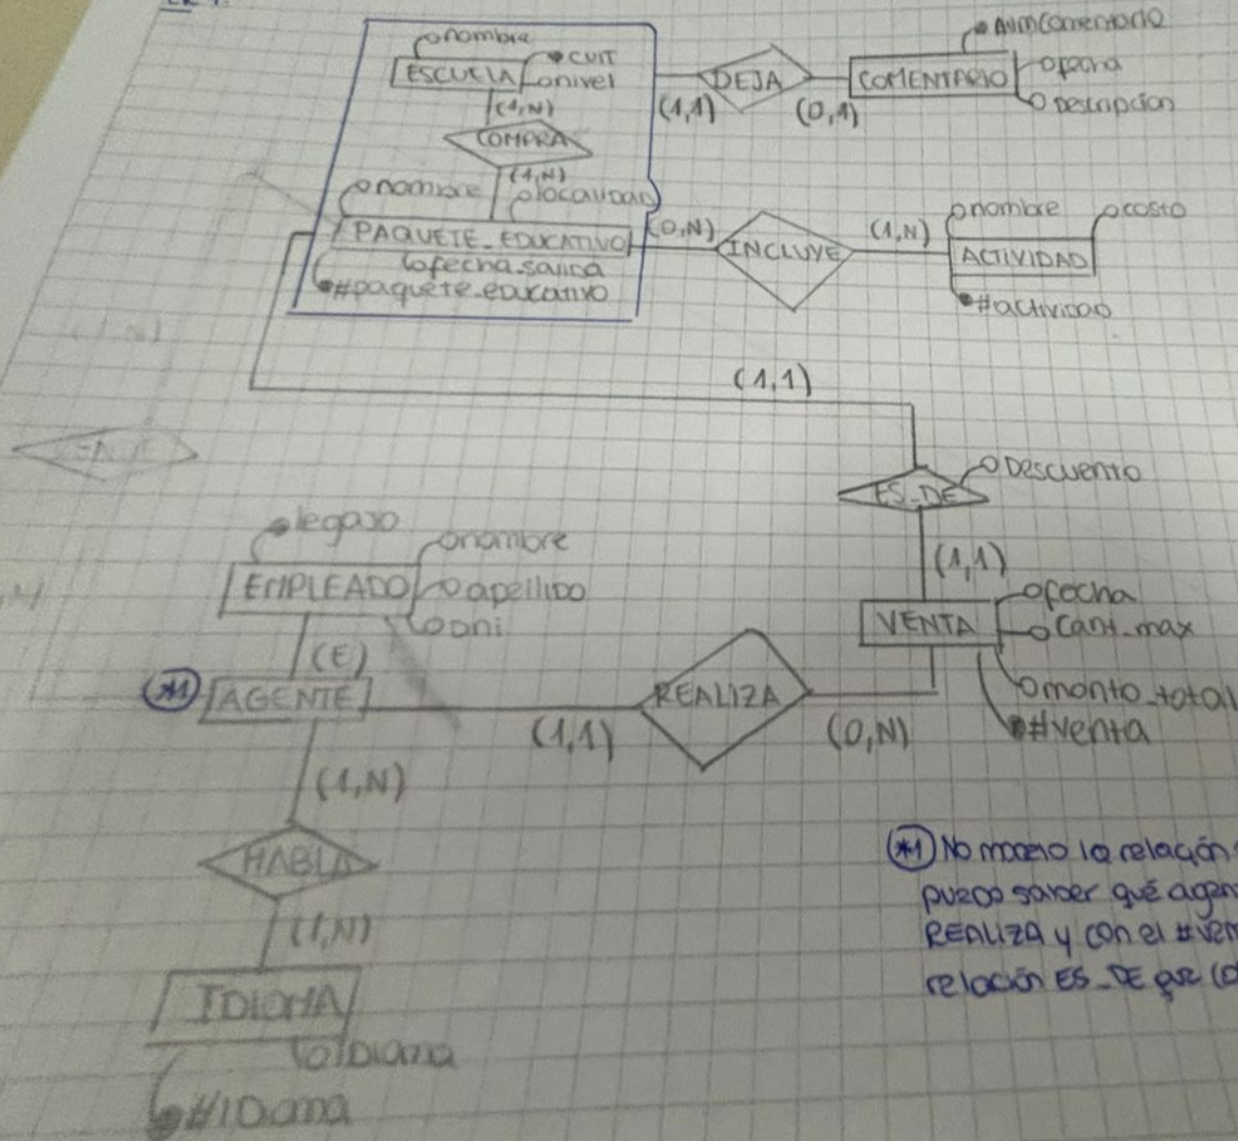 nombre
CUIT
ESCUELA
nivel
(1,N)
COMPRA
(1,N)
nombre
localidad
PAQUETE_EDUCATIVO
fecha_salida
#paquete_educativo
(1,1)
DEJA
(0,1)
NumComentario
COMENTARIO
fecha
Descripcion
(0,N)
INCLUYE
(1,N)
nombre
costo
ACTIVIDAD
#actividad
(1,1)
ES_DE
Descuento
(1,1)
fecha
VENTA
cant_max
monto_total
#venta
legajo
nombre
EMPLEADO
apellido
DNI
(E)
*1
AGENTE
(1,1)
REALIZA
(0,N)
(1,N)
HABLA
(1,N)
IDIOMA
*1 No modelo la relación
puedo saber qué agen
REALIZA y con el #ven
relación ES_DE que